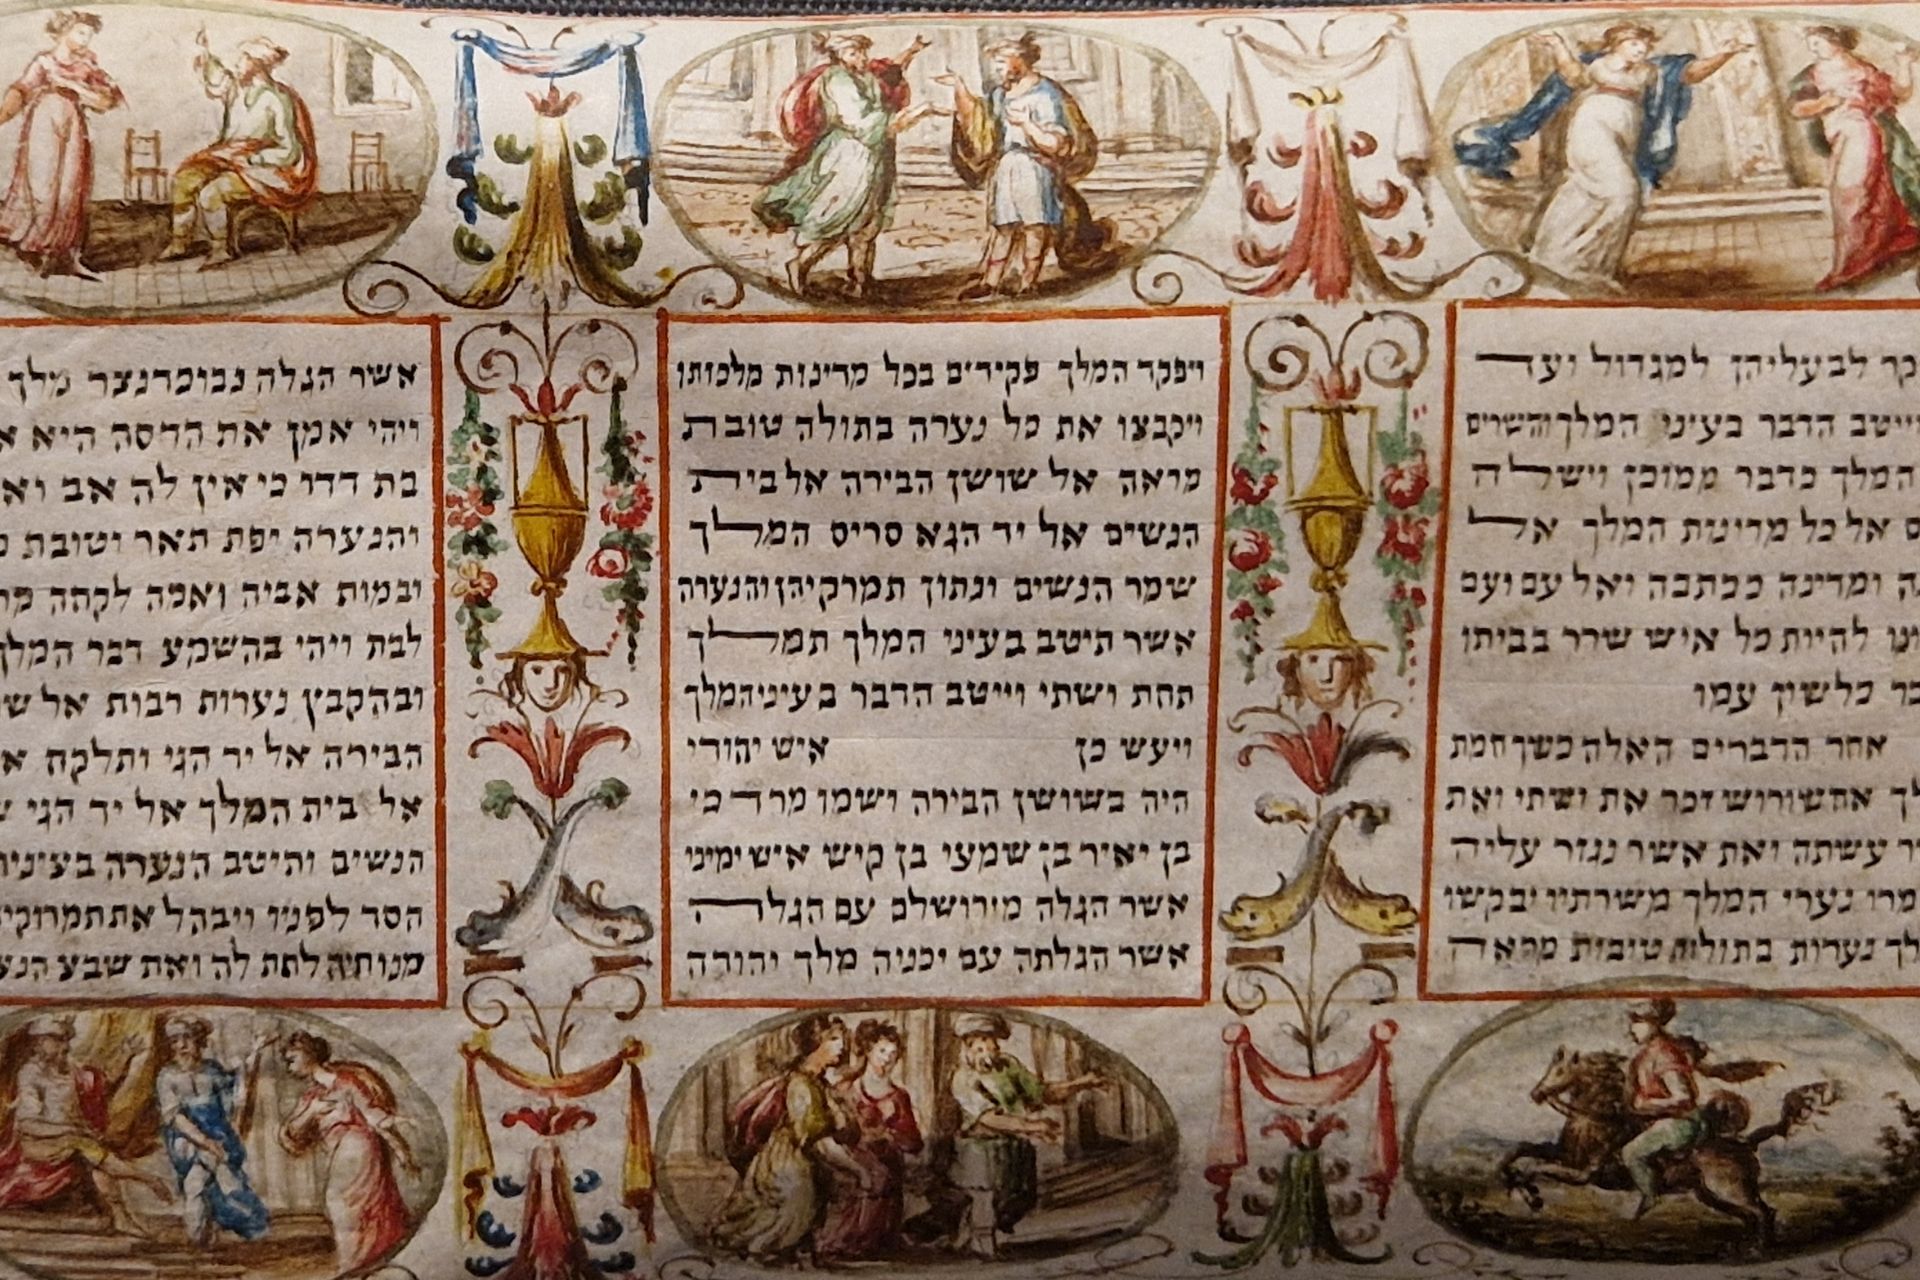 קר לבעליהן למגדול ועד
ייטב הדבר בעיני המלך והשרים
המלך כדבר ממוכן וישלח
ם אל כל מדינות המלך אל
ה ומדינה ככתבה ואל עם ועם
ונו להיות כל איש שרר בביתו
בר כלשון עמו
אחר הדברים האלה כשך חמת
לך אחשורוש זכר את ושתי ואת
ר עשתה ואת אשר נגזר עליה
מרו נערי המלך משרתיו יבקשו
לך נערות בתולות טובות מראה
ויפקד המלך פקידים בכל מדינות מלכותו
ויקבצו את כל נערה בתולה טובת
מראה אל שושן הבירה אל בית
הנשים אל יד הגא סריס המלך
שמר הנשים ונתון תמרקיהן והנערה
אשר תיטב בעיני המלך תמלך
תחת ושתי וייטב הדבר בעיני המלך
ויעש כן איש יהודי
היה בשושן הבירה ושמו מרדכי
בן יאיר בן שמעי בן קיש איש ימיני
אשר הגלה מירושלם עם הגלה
אשר הגלתה עם יכניה מלך יהודה
אשר הגלה נבוכדנצר מלך
ויהי אמן את הדסה היא א
בת דדו כי אין לה אב וא
והנערה יפת תאר וטובת מ
ובמות אביה ואמה לקחה מר
לבת ויהי בהשמע דבר המלך
ובהקבץ נערות רבות אל שו
הבירה אל יד הגי ותלקח א
אל בית המלך אל יד הגי ש
הנשים ותיטב הנערה בעיניו
חסד לפניו ויבהל את תמרוקי
מנותיה לתת לה ואת שבע הנע